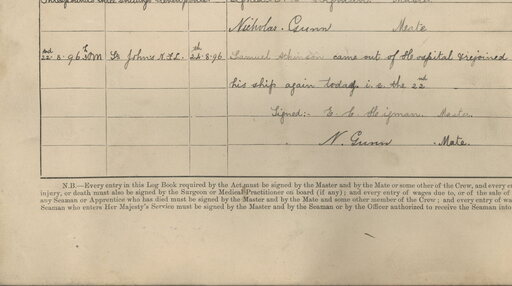 Nicholas Gunn Mate
22nd-8-96 PM St Johns N.F.L. 24th-8-96 Samuel Atkinson came out of Hospital & rejoined
his ship again today i.e. the 22nd
Signed:- E. C. Higman. Master.
N. Gunn Mate.
N.B.—Every entry in this Log Book required by the Act must be signed by the Master and by the Mate or some other of the Crew, and every
injury, or death must also be signed by the Surgeon or Medical Practitioner on board (if any); and every entry of wages due to, or of the sale of
any Seaman or Apprentice who has died must be signed by the Master and by the Mate and some other member of the Crew; and every entry of
Seaman who enters Her Majesty's Service must be signed by the Master and by the Seaman or by the Officer authorized to receive the Seaman into